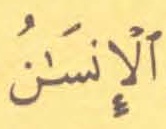 ٱلْإِنسَٰنُ